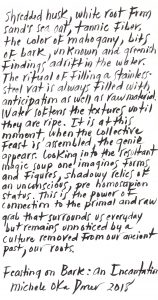 Shredded husk, white root from
sand's sea oat, tannic fiber
the color of mahogany, bits
of bark, unknown and greenish
findings adrift in the water.
The ritual of filling a stainless-
steel vat is always filled with
anticipation as well as raw material.
Water softens the textures until
they are ripe. It is at this
moment, when the collective
feast is assembled, the genie
appears. Looking into the resultant
magic soup one imagines, forms
and figures, shadowy relics of
an unconscious, pre homosapien
status. This is the power of
connection to the primal and raw
grab that surrounds us everyday
but remains unnoticed by a
culture removed from our ancient
past, our roots.
Feasting on Bark: an Incantation
Michele Oka Doner 2018